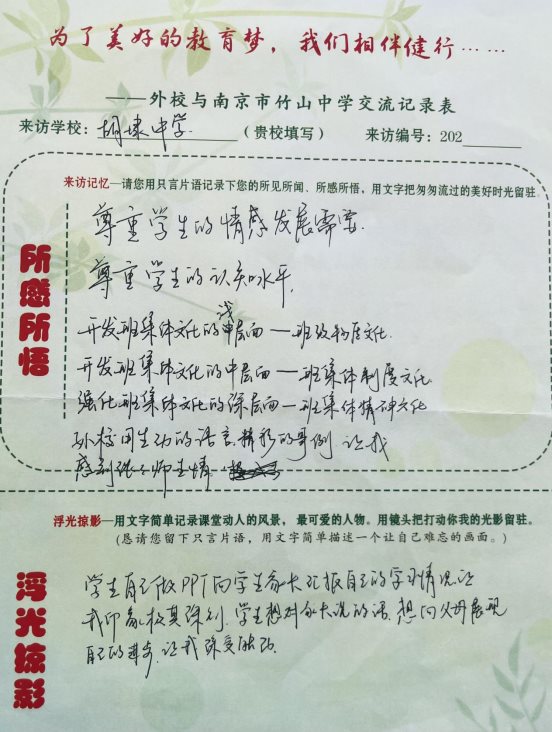 为了美好的教育梦，我们相伴健行……
——外校与南京市竹山中学交流记录表
来访学校：胡埭中学（贵校填写） 来访编号：202
来访记忆—请您用只言片语记录下您的所见所闻、所感所悟，用文字把匆匆流过的美好时光留驻。
所感所悟
尊重学生的情感发展需要.
尊重学生的认知水平.
开发班集体文化的浅层面——班级物质文化.
开发班集体文化的中层面——班集体制度文化
强化班集体文化的深层面—班集体精神文化
孙校用生动的语言.精彩的事例 让我
感到浓浓师生情.
浮光掠影—用文字简单记录课堂动人的风景，最可爱的人物。用镜头把打动你我的光影留驻。
（恳请您留下只言片语，用文字简单描述一个让自己难忘的画面。）
浮光掠影
学生自己做PPT向学生家长汇报自己的学习情况让
我印象极其深刻.学生想对家长说的话.想向父母展现
自己的进步.让我深受触动.